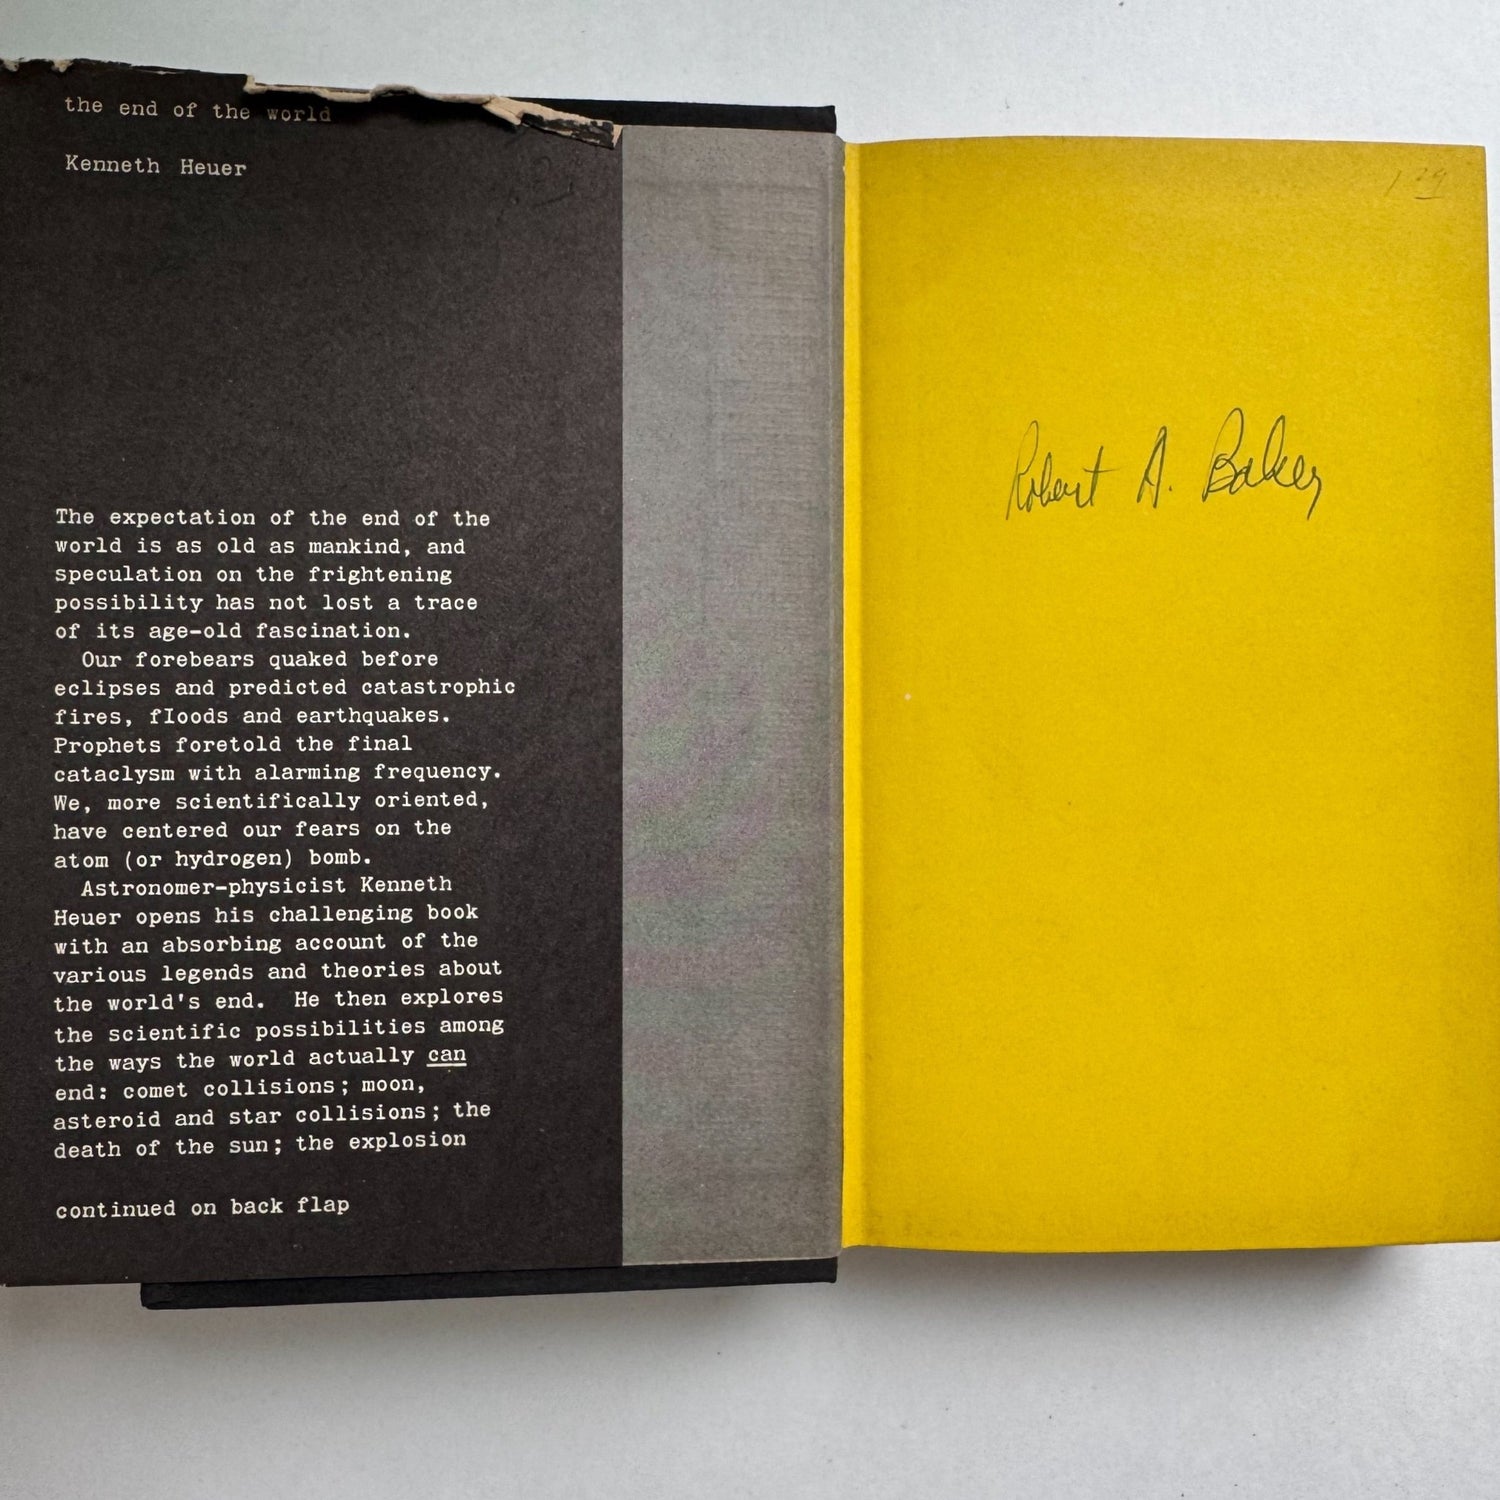 the end of the world
Kenneth Heuer
The expectation of the end of the
world is as old as mankind, and
speculation on the frightening
possibility has not lost a trace
of its age-old fascination.
Our forebears quaked before
eclipses and predicted catastrophic
fires, floods and earthquakes.
Prophets foretold the final
cataclysm with alarming frequency.
We, more scientifically oriented,
have centered our fears on the
atom (or hydrogen) bomb.
Astronomer-physicist Kenneth
Heuer opens his challenging book
with an absorbing account of the
various legends and theories about
the world's end. He then explores
the scientific possibilities among
the ways the world actually can
end: comet collisions; moon,
asteroid and star collisions; the
death of the sun; the explosion
continued on back flap
Robert A. Baker